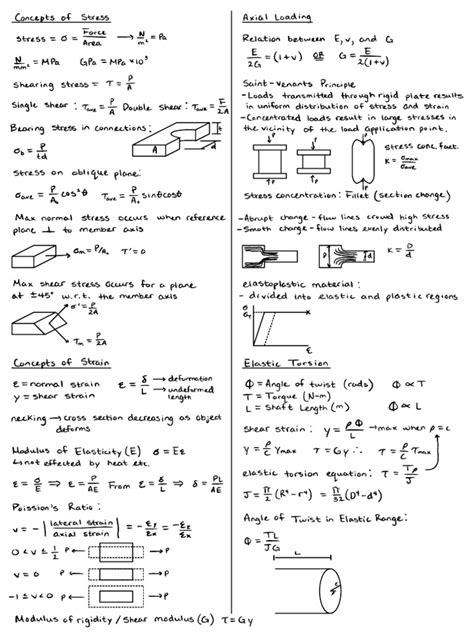 Concepts of Stress
stress = σ = Force/Area → N/m² = Pa
N/mm² = MPa GPa = MPa × 10³
shearing stress = τ = P/A
Single shear: τave = P/A Double Shear: τave = F/2A
Bearing stress in connections:
σb = P/td
A
t
d
stress on oblique plane:
σave = P/A₀ cos²θ τave = P/A₀ sinθcosθ
Max normal stress occurs when reference
plane ⊥ to member axis
σm = P/A₀ τ' = 0
Max shear stress occurs for a plane
at ±45° w.r.t. the member axis
σ' = P/2A
τm = P/2A
Concepts of Strain
ε = normal strain ε = δ/L → deformation
γ = shear strain → undeformed
length
necking → cross section decreasing as object
deforms
Modulus of Elasticity (E) σ = Eε
↳ not effected by heat etc.
ε = σ/E ⇒ ε = P/AE From ε = δ/L ⇒ δ = PL/AE
Poission's Ratio:
ν = -|lateral strain/axial strain| = -εy/εx = -εz/εx
0 < ν ≤ 1/2 P ← → P
ν = 0 P ← → P
-1 ≤ ν < 0 P ← → P
Modulus of rigidity / shear modulus (G) τ = Gγ
Axial Loading
Relation between E, ν, and G
E/2G = (1+ν) OR G = E/2(1+ν)
Saint-Venants Principle
- Loads transmitted through rigid plate results
in uniform distribution of stress and strain
- Concentrated loads result in large stresses in
the vicinity of the load application point.
stress conc. fact.
K = σmax/σave
P
P
P
P
Stress concentration: Fillet (section change)
- Abrupt change - flow lines crowd high stress
- Smoth change - flow lines evenly distributed
D
d
K = D/d
elastoplastic material:
- divided into elastic and plastic regions
σ
σY
ε
Elastic Torsion
Φ = Angle of twist (rads) Φ ∝ T
T = Torque (N-m)
L = Shaft Length (m) Φ ∝ L
shear strain: γ = ρΦ/L → max when ρ = c
γ = ρ/c γmax τ = Gγ ∴ τ = ρ/c τmax
elastic torsion equation: τ = Tρ/J
J = π/2 (R⁴ - r⁴) = π/32 (D⁴ - d⁴)
Angle of Twist in Elastic Range:
Φ = TL/JG
L